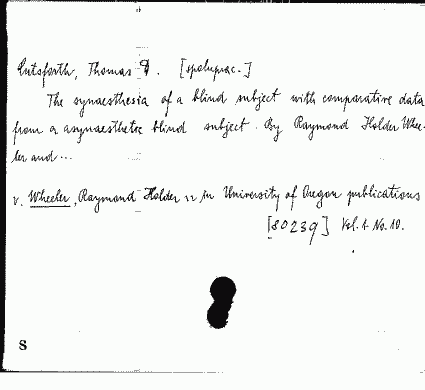 Cutsforth, Thomas D. [spoluprac.]
The synaesthesia of a blind subject with comparative data
from a asynaesthetic blind subject. By Raymond Holder Whee-
ler and ...
v. Wheeler, Raymond Holder in University of Oregon publications
[80239] Vol. 1 No. 10.
S